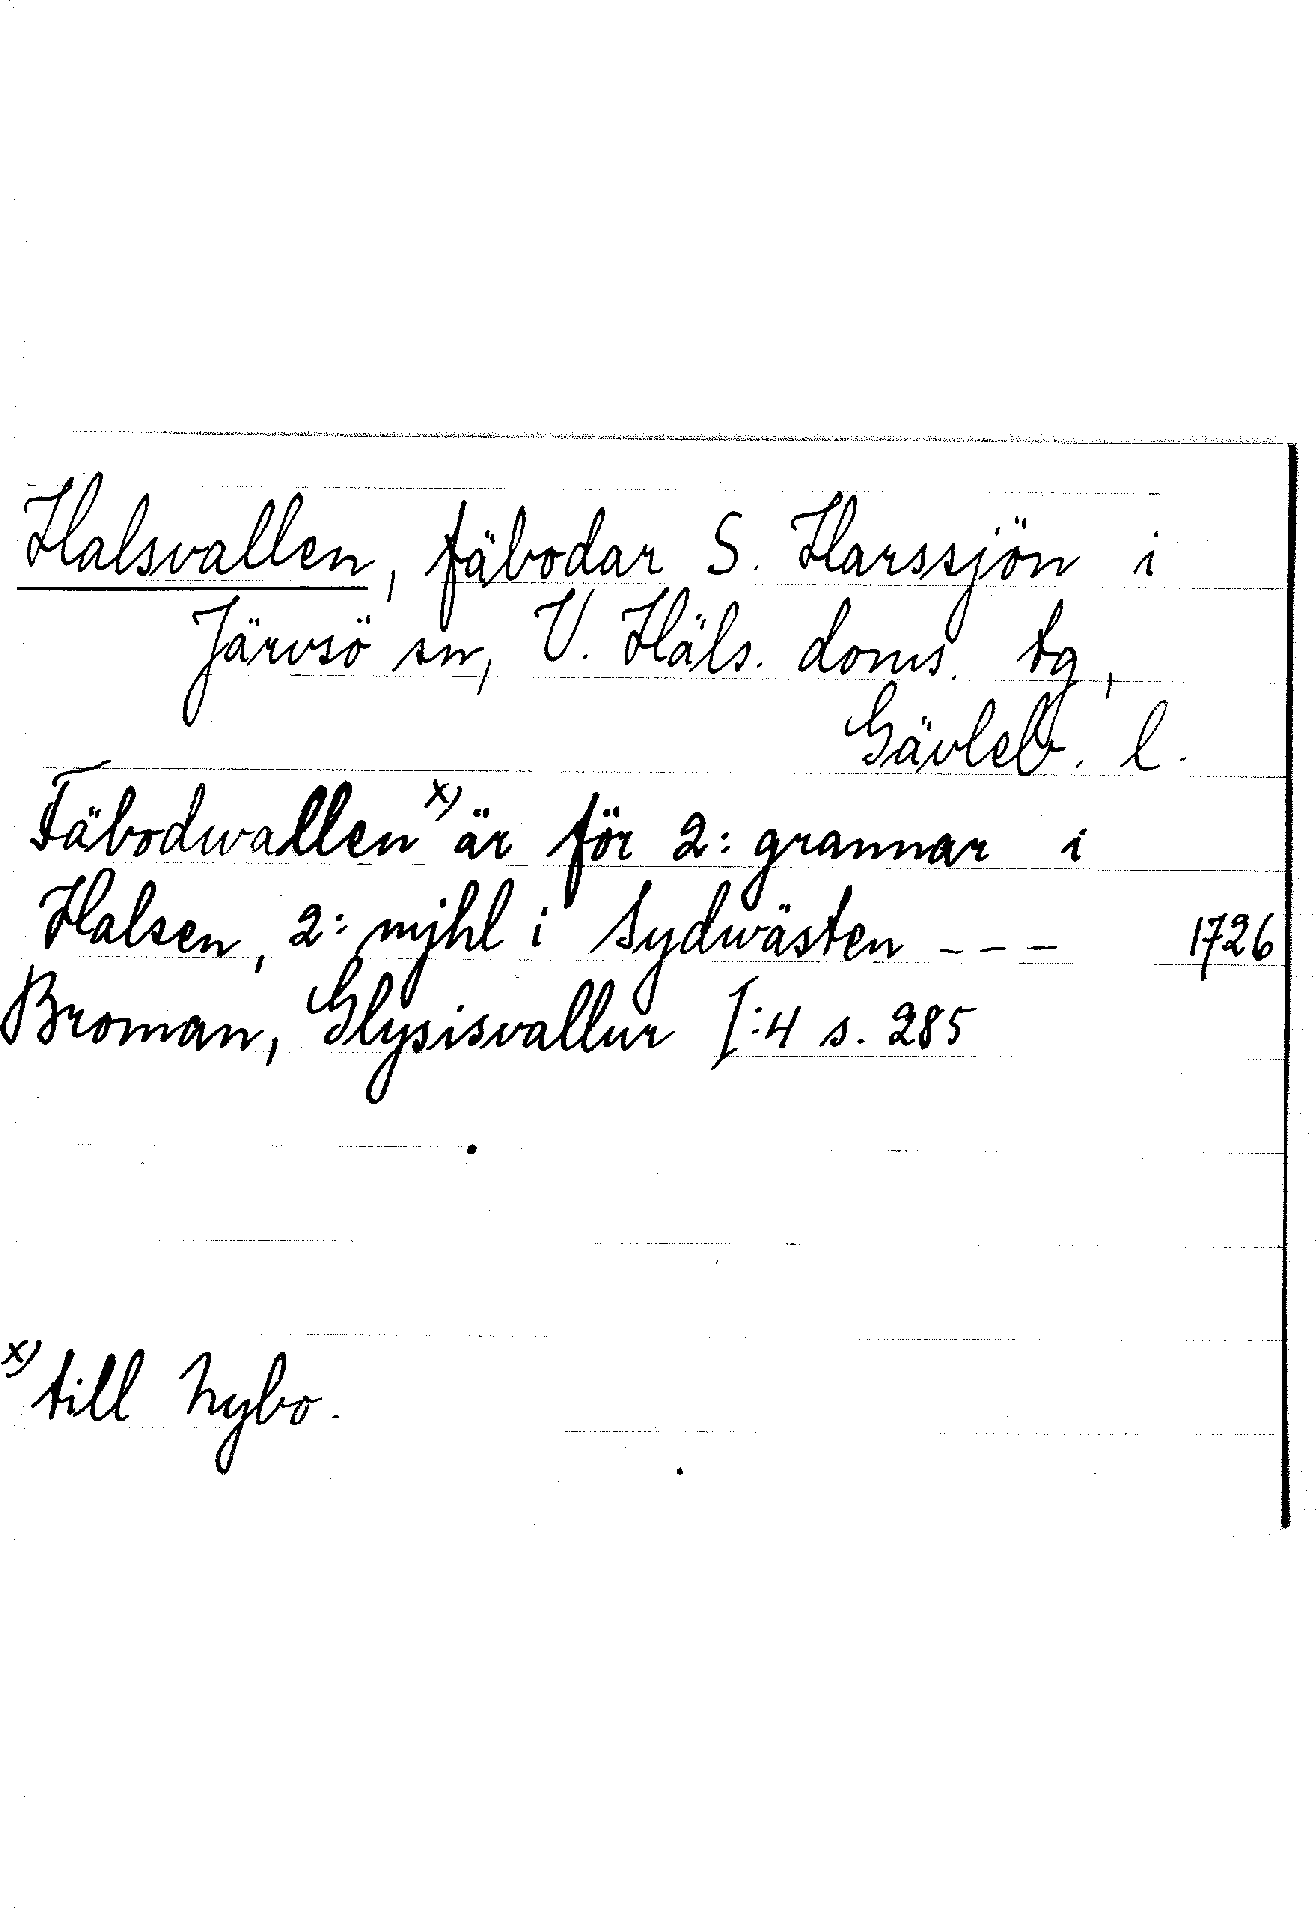 Halsvallen, fäbodar S. Harssjön i
Järvsö sn, V. Häls. doms. tg,
Gävleb. l.
Fäbodwallen x) är för 2: grannar i
Halsen, 2: mijhl i Sydwästen - - - 1726
Broman, Glysisvallur I:4 s. 285
x) till Nybo.